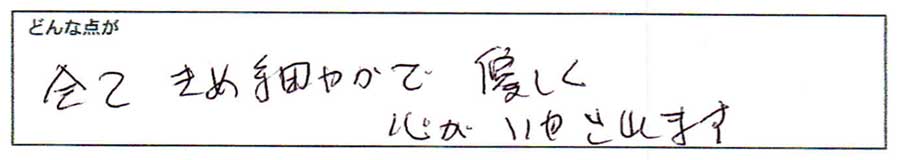 どんな点が
全て きめ細やかで 優しく
心が いやされます